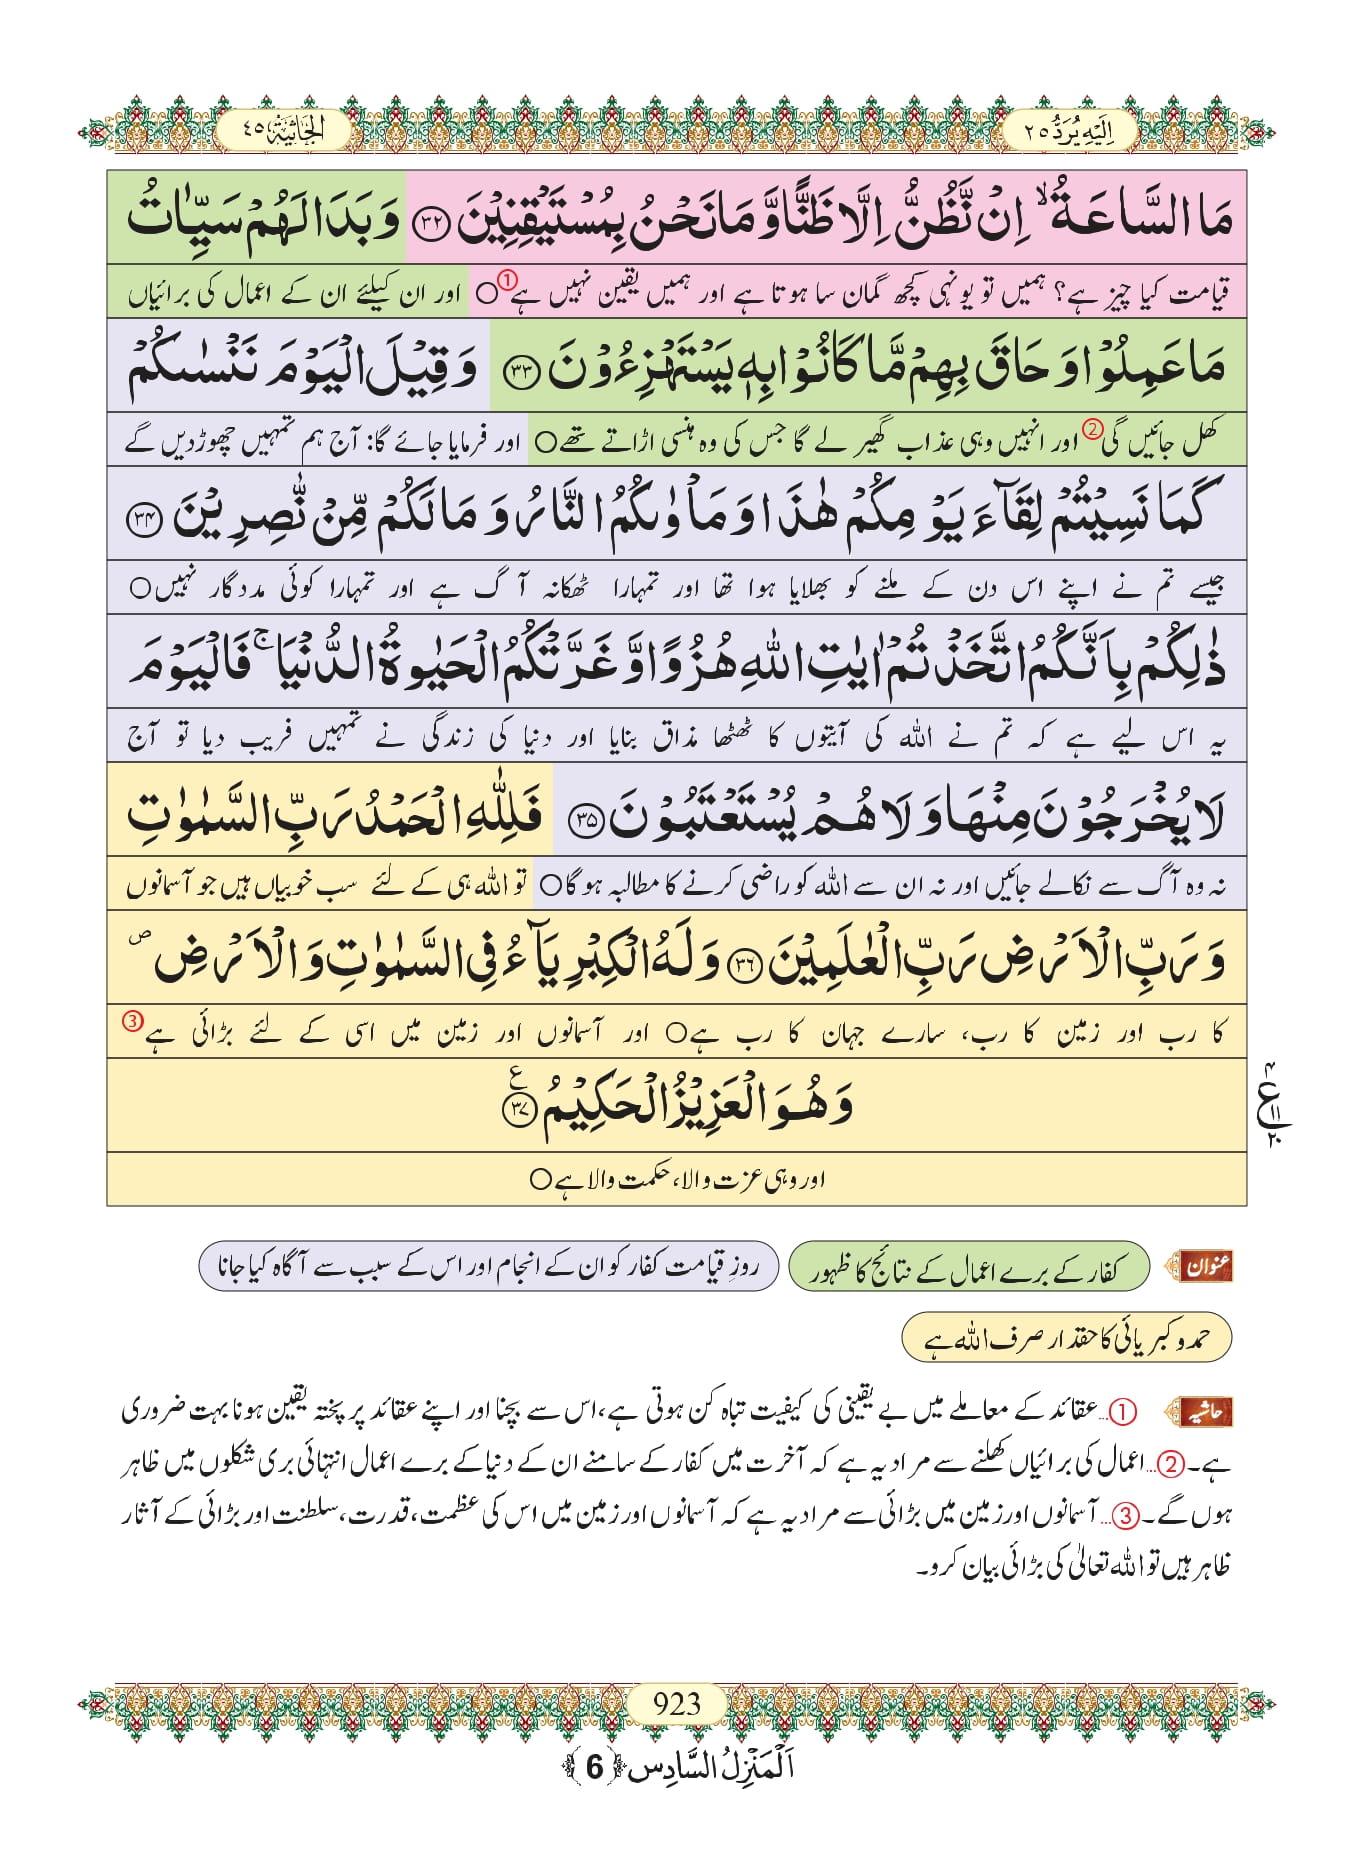 اِلَیْهِ یُرَدُّ ۲۵
الجَاثِیَۃ ۴۵
مَا السَّاعَةُۙ اِنْ نَّظُنُّ اِلَّا ظَنًّا وَّ مَا نَحْنُ بِمُسْتَیْقِنِیْنَ ﴿۳۲﴾ وَ بَدَا لَهُمْ سَیِّاٰتُ
قیامت کیا چیز ہے؟ ہمیں تو یونہی کچھ گمان سا ہوتا ہے اور ہمیں یقین نہیں ہے① ○ اور ان کیلئے ان کے اعمال کی برائیاں
مَا عَمِلُوْا وَ حَاقَ بِهِمْ مَّا كَانُوْا بِهٖ یَسْتَهْزِءُوْنَ ﴿۳۳﴾ وَ قِیْلَ الْیَوْمَ نَنْسٰىكُمْ
کھل جائیں گی② اور انہیں وہی عذاب گھیر لے گا جس کی وہ ہنسی اڑاتے تھے○ اور فرمایا جائے گا: آج ہم تمہیں چھوڑدیں گے
كَمَا نَسِیْتُمْ لِقَآءَ یَوْمِكُمْ هٰذَا وَ مَاْوٰىكُمُ النَّارُ وَ مَا لَكُمْ مِّنْ نّٰصِرِیْنَ ﴿۳۴﴾
جیسے تم نے اپنے اس دن کے ملنے کو بھلایا ہوا تھا اور تمہارا ٹھکانہ آگ ہے اور تمہارا کوئی مددگار نہیں○
ذٰلِكُمْ بِاَنَّكُمُ اتَّخَذْتُمْ اٰیٰتِ اللّٰهِ هُزُوًا وَّ غَرَّتْكُمُ الْحَیٰوةُ الدُّنْیَاۚ فَالْیَوْمَ
یہ اس لیے ہے کہ تم نے اللہ کی آیتوں کا ٹھٹھا مذاق بنایا اور دنیا کی زندگی نے تمہیں فریب دیا تو آج
لَا یُخْرَجُوْنَ مِنْهَا وَ لَا هُمْ یُسْتَعْتَبُوْنَ ﴿۳۵﴾ فَلِلّٰهِ الْحَمْدُ رَبِّ السَّمٰوٰتِ
نہ وہ آگ سے نکالے جائیں اور نہ ان سے اللہ کو راضی کرنے کا مطالبہ ہوگا○ تو اللہ ہی کے لئے سب خوبیاں ہیں جو آسمانوں
وَ رَبِّ الْاَرْضِ رَبِّ الْعٰلَمِیْنَ ﴿۳۶﴾ وَ لَهُ الْكِبْرِیَآءُ فِی السَّمٰوٰتِ وَ الْاَرْضِ۪
کا رب اور زمین کا رب، سارے جہان کا رب ہے○ اور آسمانوں اور زمین میں اسی کے لئے بڑائی ہے③
وَ هُوَ الْعَزِیْزُ الْحَكِیْمُ۠ ﴿۳۷﴾
۴
ع
۱۱
۲۰
اور وہی عزت والا، حکمت والا ہے○
عنوان کفار کے برے اعمال کے نتائج کا ظہور روزِ قیامت کفار کو ان کے انجام اور اس کے سبب سے آگاہ کیا جانا
حمد و کبریائی کا حقدار صرف اللہ ہے
حاشیہ ①...عقائد کے معاملے میں بے یقینی کی کیفیت تباہ کن ہوتی ہے، اس سے بچنا اور اپنے عقائد پر پختہ یقین ہونا بہت ضروری
ہے۔ ②...اعمال کی برائیاں کھلنے سے مراد یہ ہے کہ آخرت میں کفار کے سامنے ان کے دنیا کے برے اعمال انتہائی بری شکلوں میں ظاہر
ہوں گے۔ ③...آسمانوں اور زمین میں بڑائی سے مراد یہ ہے کہ آسمانوں اور زمین میں اس کی عظمت، قدرت، سلطنت اور بڑائی کے آثار
ظاہر ہیں تو اللہ تعالٰی کی بڑائی بیان کرو۔
923
اَلْمَنْزِلُ السَّادِس ﴿6﴾